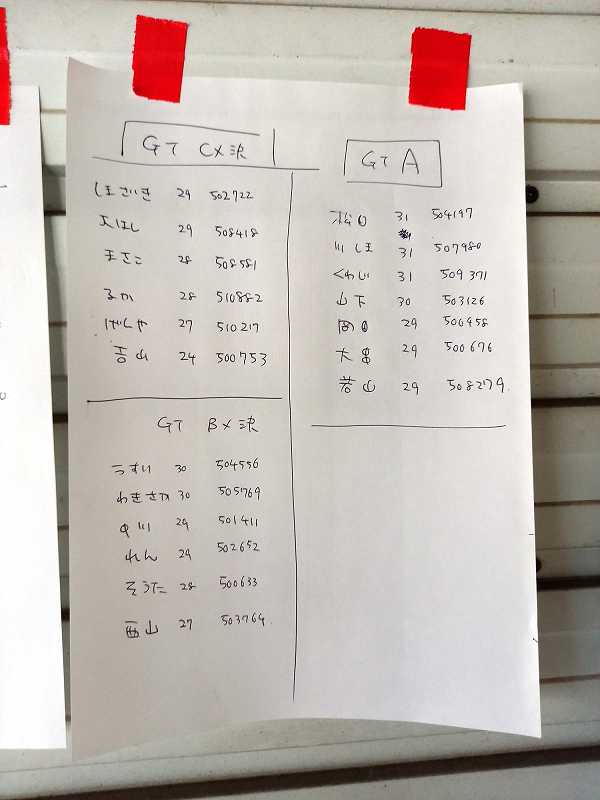 GT Cメ決
しまざいき 29 502722
大はし 29 508418
まさこ 28 508581
るか 28 510882
げしゃ 27 510217
吉山 24 500753
GT Bメ決
うすい 30 504556
わきさか 30 505769
中川 29 501411
れん 29 502652
そうた 28 500633
西山 27 503764
GT A
松田 31 504197
川しま 31 507980
くわじ 31 509371
山下 30 503126
岡田 29 500958
大串 29 500676
岩山 29 508279